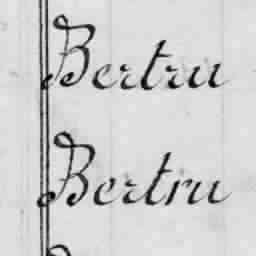 Bertru
Bertru